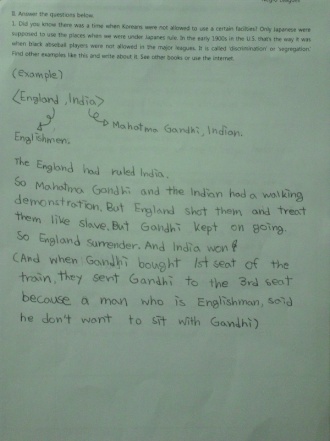 B. Answer the questions below.
1. Did you know there was a time when Koreans were not allowed to use a certain facilities? Only Japanese were
supposed to use the places when we were under Japans rule. In the early 1900s in the U.S. thats the way it was
when black abseball players were not allowed in the major leagues. It is called 'discrimination' or 'segregation.'
Find other examples like this and write about it. See other books or use the internet.
(example)
<England, India>
Mahatma Gandhi, Indian.
Englishmen.
The England had ruled India.
So Mahatma Gandhi and the Indian had a walking
demonstration. But England shot them and treat
them like slave. But Gandhi kept on going.
So England surrender. And India won!
(And when Gandhi bought 1st seat of the
train, they sent Gandhi to the 3rd seat
because a man who is Englishman, said
he don't want to sit with Gandhi)